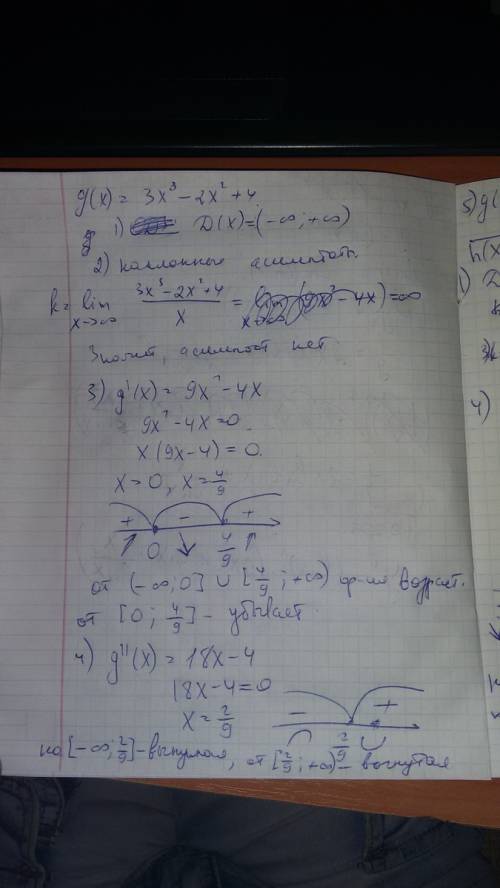 g(x) = 3x³ - 2x² + 4
1) D(x) = (-∞; +∞)
2) наклонные асимптоты
k = lim x→∞ (3x³ - 2x² + 4)/x = = ∞
Значит, асимптот нет
3) g'(x) = 9x² - 4x
9x² - 4x = 0.
x(9x - 4) = 0.
x = 0, x = 4/9
+ - +
↑ 0 ↓ 4/9 ↑
от (-∞; 0] ∪ [4/9; +∞) ф-ия возраст.
от [0; 4/9] - убывает
4) g''(x) = 18x - 4
18x - 4 = 0
x = 2/9
- +
2/9
на [-∞; 2/9] - выпуклая, от [2/9; +∞) - вогнутая
5) g(
h(x
1) D
4)